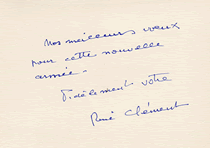 Nos meilleurs vœux
pour cette nouvelle
année.
Fidèlement vôtre
René Clément